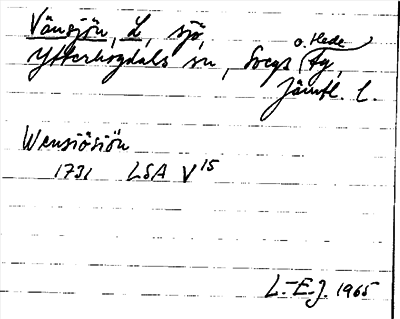 Vänsjön, L, sjö,
Ytterhogdals sn, Svegs o. Hede tg,
Jämtl. l.
Wensiösiön
1731 LSA V 15
L.-E.J. 1965